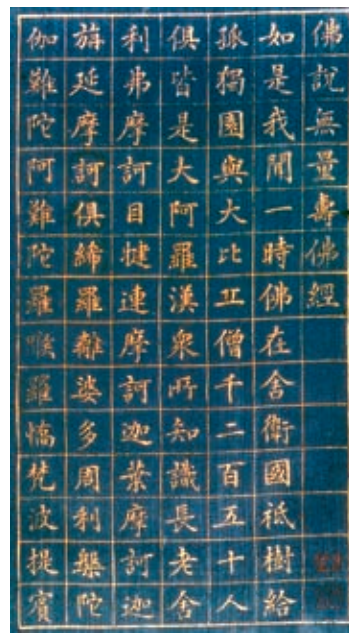 佛說無量壽佛經
如是我聞一時佛在舍衛國祇樹給
孤獨園與大比丘僧千二百五十人
俱皆是大阿羅漢衆所知識長老舍
利弗摩訶目犍連摩訶迦葉摩訶迦
旃延摩訶俱絺羅離婆多周利槃陀
伽難陀阿難陀羅睺羅憍梵波提賓